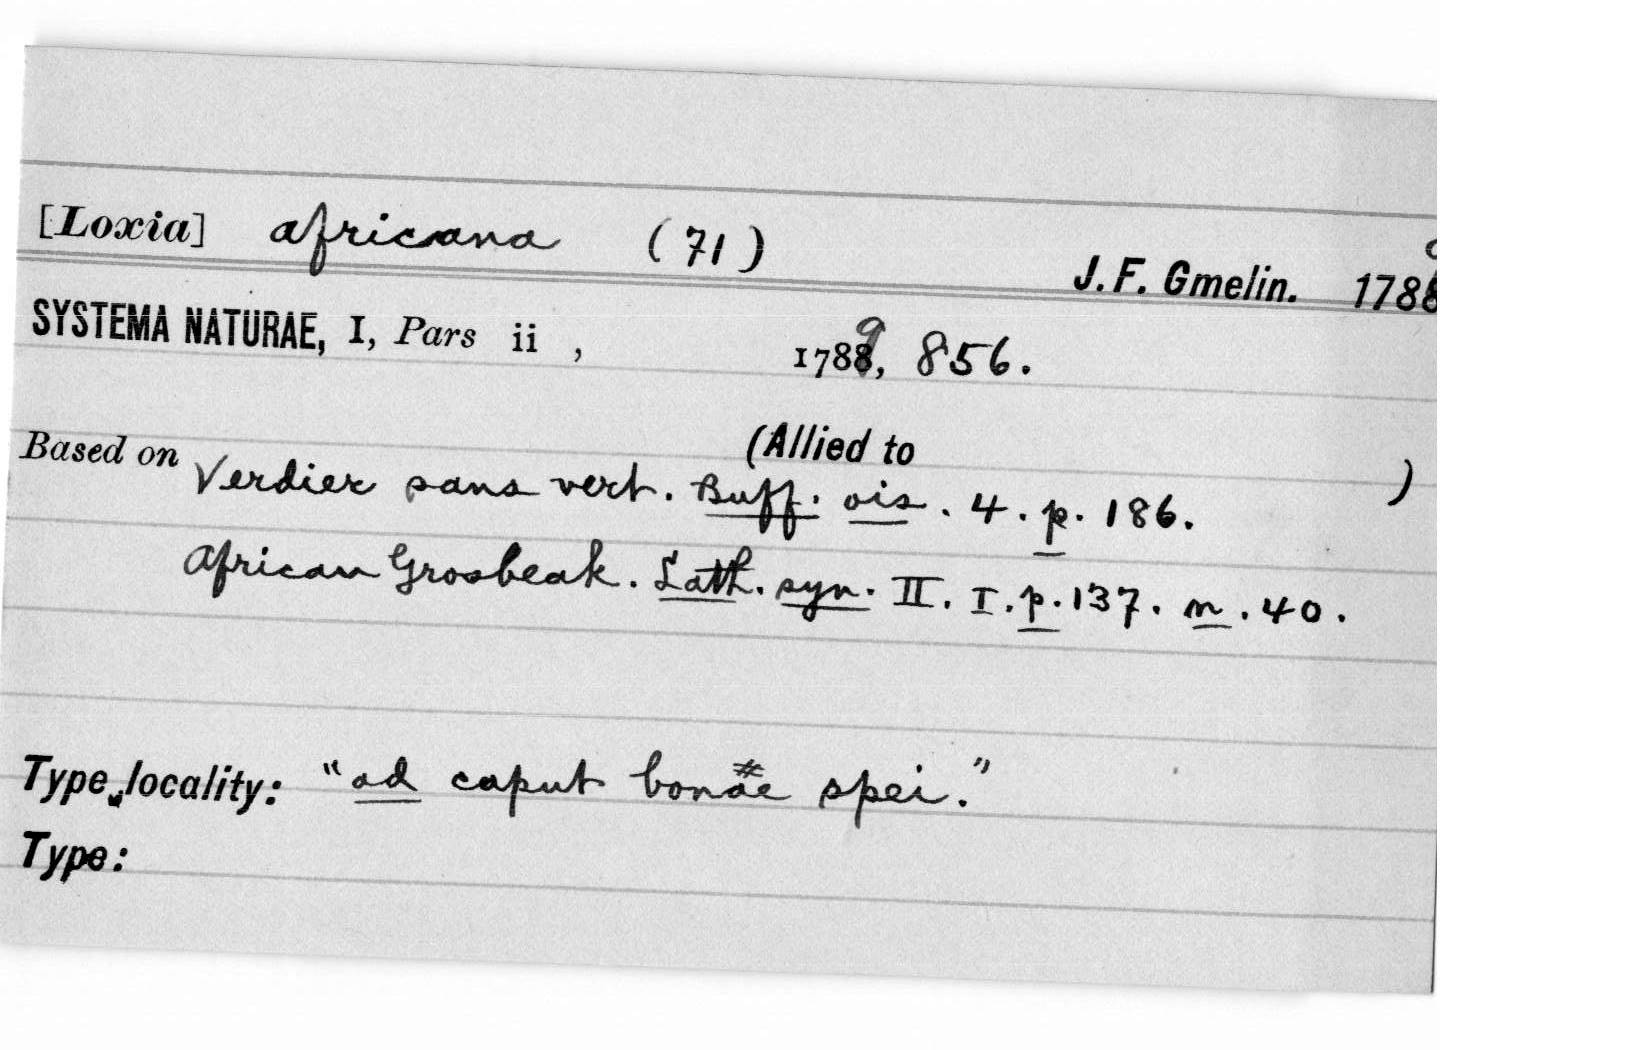 [Loxia] africana (71)
J. F. Gmelin. 1788
SYSTEMA NATURAE, I, Pars ii , 1789, 856.
(Allied to )
Based on Verdier sans vert. Buff. ois. 4. p. 186.
African Grosbeak. Lath. syn. II. I. p. 137. n. 40.
Type locality: "ad caput bonae spei."
Type: